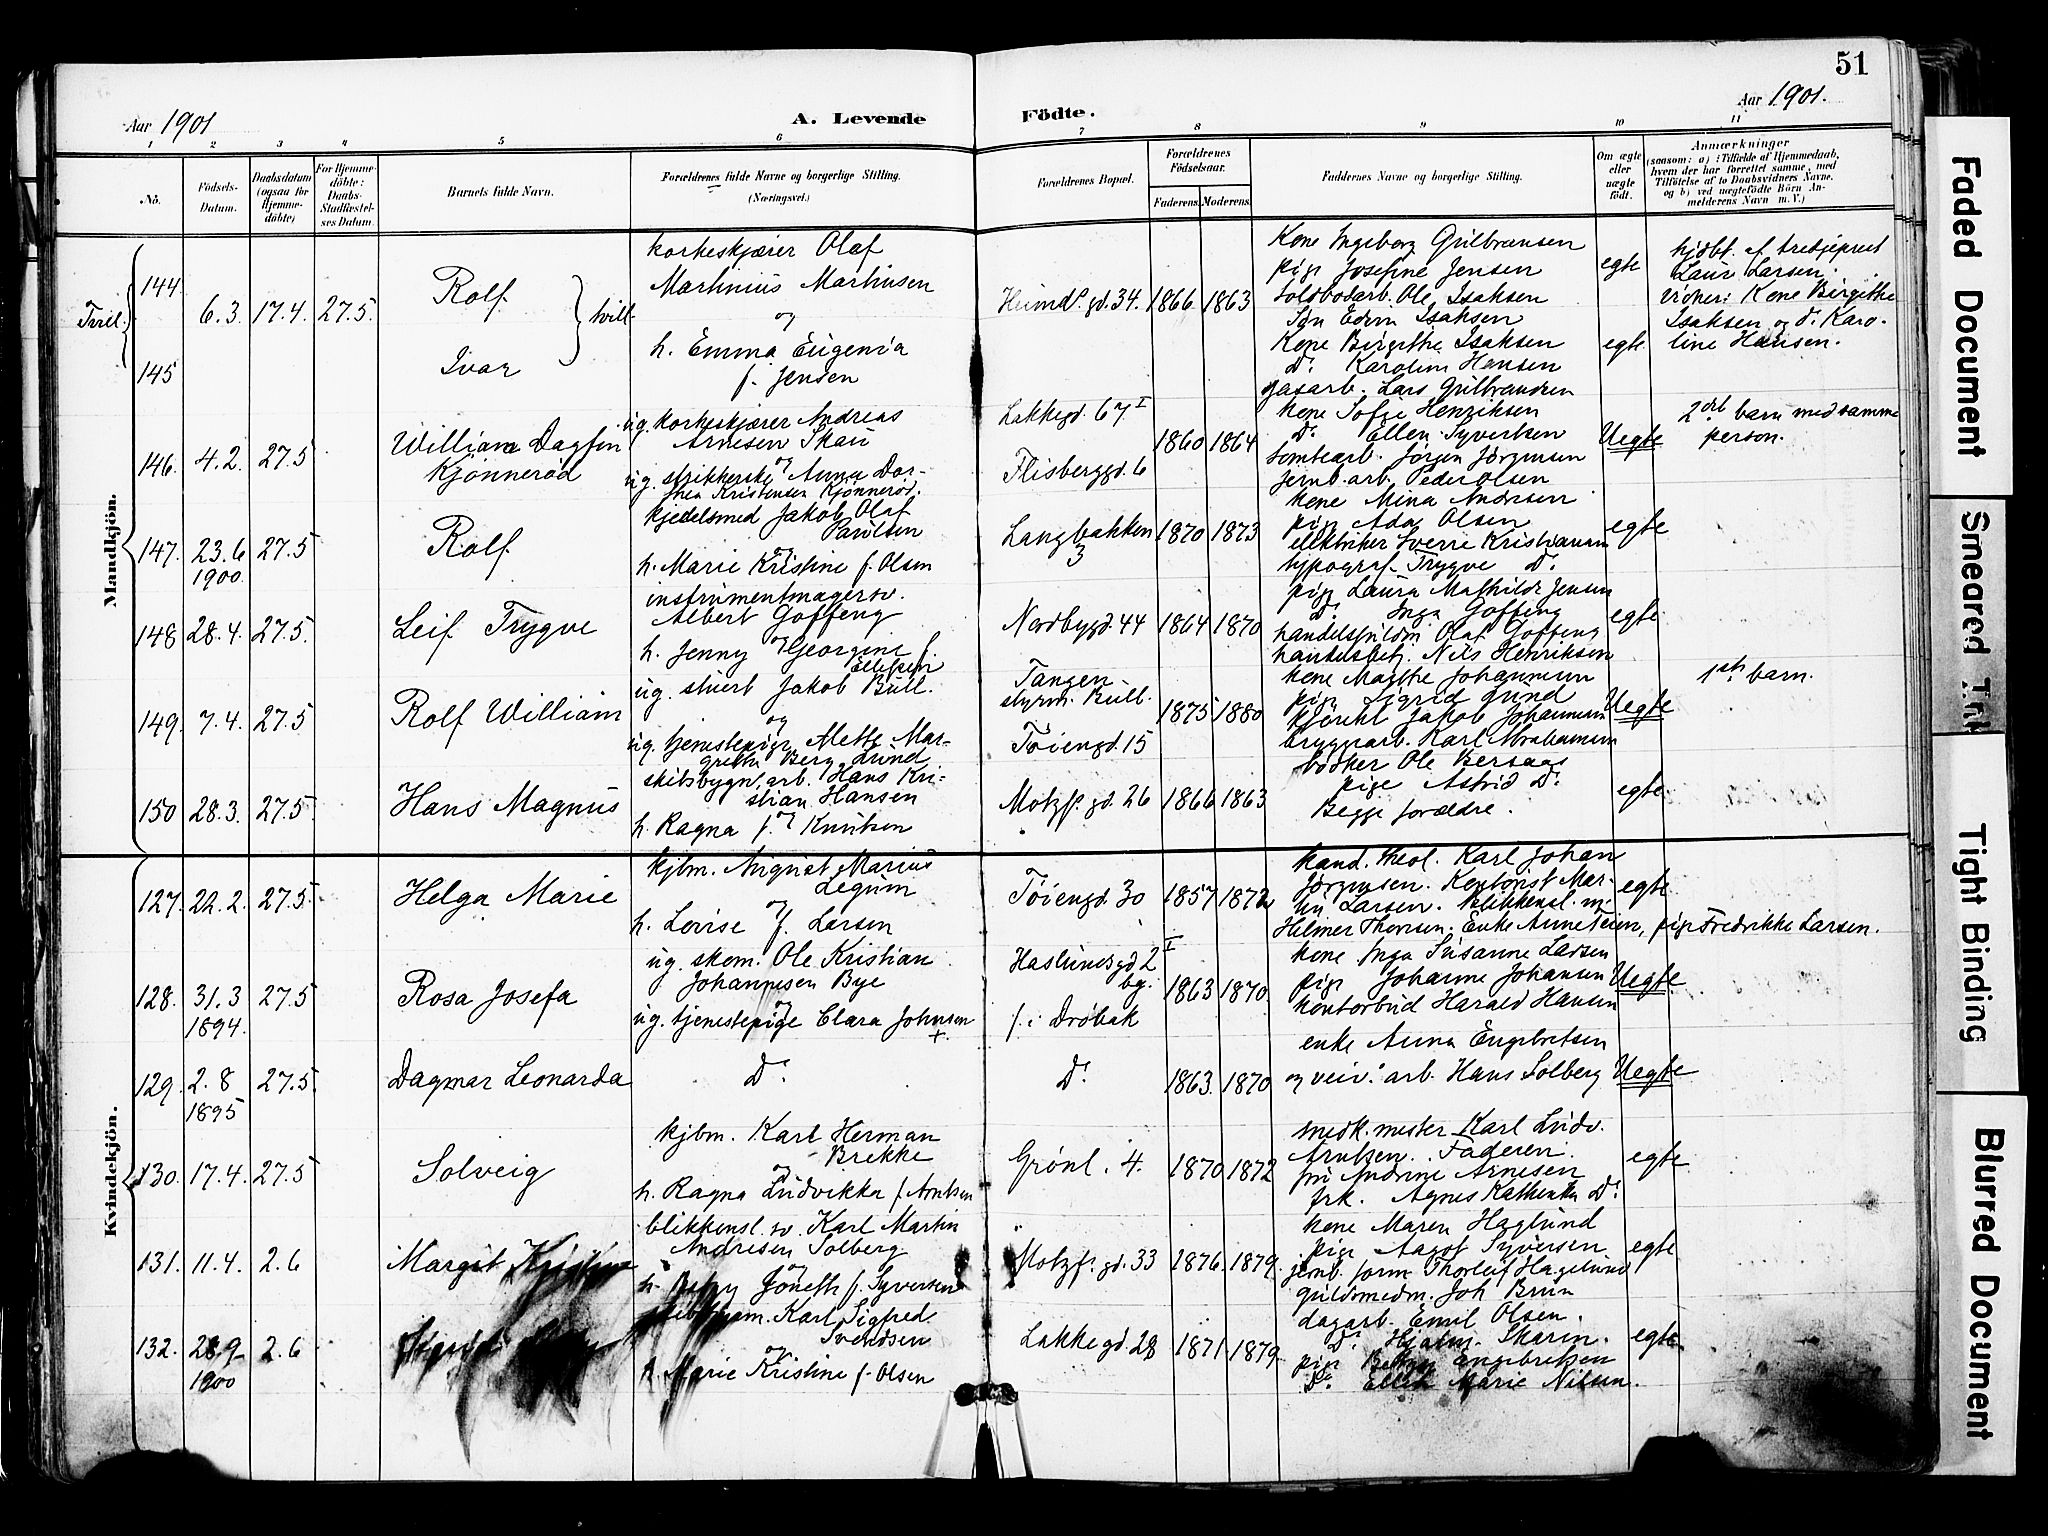 51
Aar 1901
A. Levende Födte.
Aar 1901.
1 2 3 4 5 6 7 8 9 10 11
No.
Födsels-Datum.
Daabsdatum (ogsaa for Hjemmedöbte)
For Hjemmedöbte: Daabs-Stadfæstelses Datum.
Barnets fulde Navn.
Forældrenes fulde Navne og borgerlige Stilling.
(Næringsvei.)
Forældrenes Bopæl.
Forældrenes Födselsaar.
Faderens. Moderens.
Faddernes Navne og borgerlige Stilling.
Om ægte eller uægte födt.
Anmærkninger
(saasom: a) i Tilfælde af Hjemmedaab,
hvem der har forrettet samme, med
Tilföielse af to Daabsvidners Navne.
og b) ved uægtefödte Börn An-
melderens Navn m.V.)
Mandkjön.
Tvil.
144 6.3. 17.4. 27.5. Rolf tvill.
145 Ivar
korkeskjærer Olaf
Martinius Martinsen
og
h. Emma Eugenia
f. Jensen
Heimd. gd. 34. 1866 1863
Kone Ingeborg Gulbransen
pige Josefine Jensen
Soldbodarb. Ole Isaksen
Søn Edvin Isaksen
Kone Birgithe Isaksen
Do Karoline Hansen
gasarb. Lars Gulbrandsen
egte
egte
hjdbt. af tredjeprest
Laur Larsen.
vidner: Kone Birgithe
Isaksen og d. Karo-
line Hansen.
146. 4.2. 27.5 William Dagfin
Kjønnerød
ug. korkeskjærer Andreas
Arnesen Skau
og
ug. strikkerske Anna Dor-
thea Kristensen Kjønnerød.
Lakkegd. 67 I
Flisberggd. 6
1860 1864
kone Sofie Henriksen
Do Ellen Syvertsen
tomtearb. Jørgen Jørgensen
jernb. arb. Peder Olsen
Uegte
2det barn med samme
person.
147. 23.6 27.5 Rolf
1900.
kjedelsmed Jakob Olaf
Paulsen
og
h. Marie Kristine f. Olsen
Langbakken
3
1870 1873
kone Mina Andresen
pige Ada Olsen
elektriker Sverre Kristiansen
typograf Trygve Do
egte
148 28.4. 27.5. Leif Trygve
instrumentmagersv.
Albert Goffeng
og
h. Jenny Georgine f.
Ellefsen
Nordbygd. 44 1864 1870
pige Laura Mathilde Jensen
Do Inga Goffeng
handelsfuldm Olaf Goffeng
handelsbetj. Nils Henriksen
egte
149. 7.4. 27.5 Rolf William
ug. stuert Jakob Bull.
og
ug. tjenestepige Mette Mar-
grethe Berg Lund
Tangen
styrm. Bull.
Tøiengd. 15
1875 1880
kone Magthe Johannesen
pige Sigrid Lund
Jakob Johannesen
bryggarb. Karl Abrahamsen
Uegte
1ste barn.
150 28.3. 27.5 Hans Magnus
skibsbygn. arb. Hans Kri-
stian Hansen
og
h. Ragna f. Knutsen
Motzf. gd. 26 1866 1863
bødker Ole Bersaas
pige Astrid Do
Begge forældre.
egte
Kvindekjön.
127. 22.2. 27.5. Helga Marie
kjbm. August Marius
Legum
og
h. Lovise f. Larsen
Tøiengd. 30 1857 1872
kand. theol. Karl Johan
Jørgensen. Kontorist Mar-
tin Larsen. Blikkensl. m.
Helmer Thoresen. Enke Anne Teien, pige Fredrikke Larsen.
egte
128. 31.3 27.5 Rosa Josefa
1894.
ug. skom. Ole Kristian
Johannesen Bye
og
ug. tjenestepige Clara Johnsen
+
Haslumsgd 2 I
bg.
f. i Drøbak
1863 1870
kone Inga Susanne Larsen
pige Johanne Johansen
kontorbud Harald Hansen
Uegte
129. 2.8 27.5 Dagmar Leonarda
1895
Do
Do
1863. 1870
enke Anna Engebretsen
og veiv. arb. Hans Solberg
Uegte
130. 17.4. 27.5 Solveig
kjbm. Karl Herman
Brekke
og
h. Ragna Ludvikka f. Arntsen
Grønl. 4. 1870 1872
snedk. mester Karl Ludv.
Arntsen. Faderen.
fru Andrine Arnesen
frk. Agnes Kathinka Do
egte
131. 11.4. 2.6 Margit
blikkensl. sv. Karl Martin
Andresen Solberg
og
h. Jonette f. Syversen
Motzf. gd. 33 1876. 1879.
kone Maren Haglund
pige Aagot Syversen.
jernb. form Thorleif Hagelund
guldsmedm. Joh Brun
egte
132. 28.9 2.6
1900
Karl Sigfred
Svendsen
og
h. Marie Kristine f. Olsen
Lakkegd. 28 1871 1879
dagarb. Emil Olsen.
Do Hjalm. Skarin.
pige Engebretsen
Do Ellen Marie Nilsen.
egte
Faded Document
Smeared Ink
Tight Binding
Blurred Document